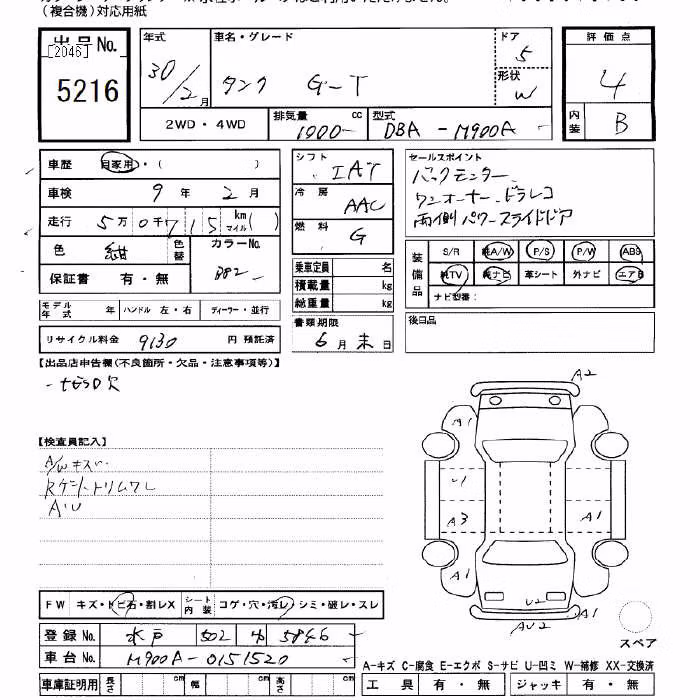 (複合機)対応用紙
出品 No.
[2046]
5216
年式
30/2月
車名・グレード
タンク G-T
ドア
5
形状
W
評価点
4
内装
B
2WD・4WD
排気量
1000 cc
型式
DBA - M900A
車歴 自家用・( )
車検 9年 2月
走行 5万0千715 km マイル( )
色 紺 色替
カラーNo.
B82
保証書 有・無
シフト
IAT
冷房
AAC
燃料
G
乗車定員 名
積載量 kg
総重量 kg
書類期限
6月末日
セールスポイント
バックモニター
ワンオーナー ドラレコ
両側パワースライドドア
装備品
S/R 純A/W P/S P/W ABS
純TV 純ナビ 革シート 外ナビ エアB
ナビ型番:
モデル年式 年 ハンドル 左・右 ディーラー・並行
リサイクル料金 9130 円 預託済
後日品
【出品店申告欄(不良箇所・欠品・注意事項等)】
ナビSD欠
A2
A1
U1
A3
A1
A1
A1
U2
AU2
【検査員記入】
A/Wキズ
Rゲートトリムワレ
AU
FW キズ・トビ石・割レX
シート内装 コゲ・穴・汚レ・シミ・破レ・スレ
登録 No. 水戸 502 5846
車台 No. M900A-0151520
車庫証明用 長さ cm 幅 cm 高さ cm
スペア
A-キズ C-腐食 E-エクボ S-サビ U-凹ミ W-補修 XX-交換済
工具 有・無 ジャッキ 有・無